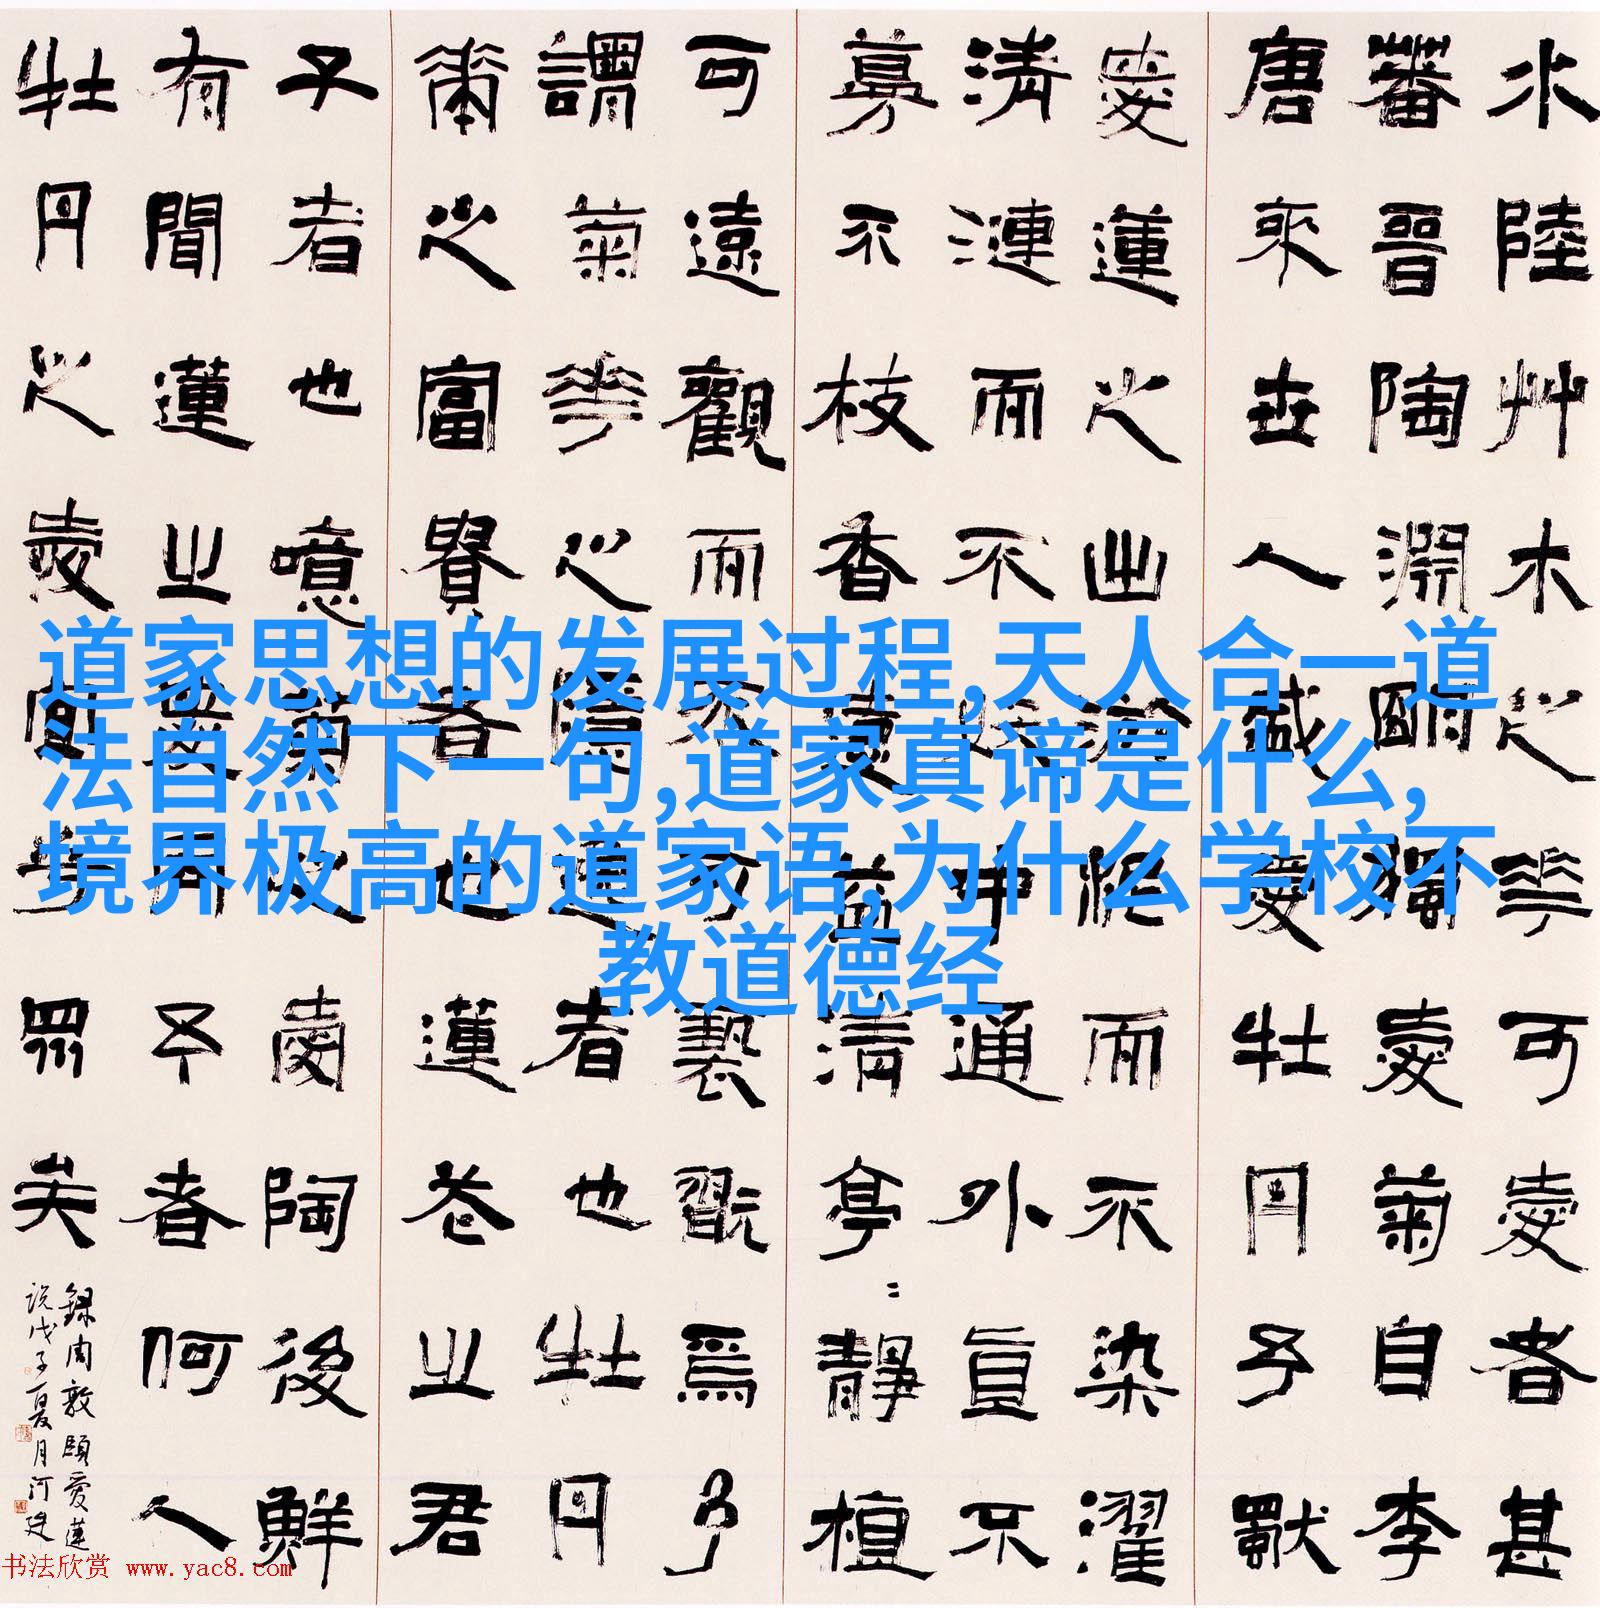 道家思想的发展过程,天人合一道
法自然下一句,道家真谛是什么,
境界极高的道家语,为什么学校不
教道德经
水陸艸木之花可愛者甚
蕃晉陶淵朙獨愛菊自李
唐來世人盛愛牡丹予獨
愛蓮之出淤泥而不染濯
清漣而不妖中通外直不
蔓不枝香遠益清亭二靜植
可遠觀而不可褻翫焉予
謂菊花之隱逸者也牡丹
華之富貴者也蓮花之君
子者也噫菊之愛陶後鮮
有聞蓮之愛同予者何人
牡丹之愛宜乎眾矣
錄周敦頤愛蓮
說戊子夏月河
书法欣赏 www.yac8.com